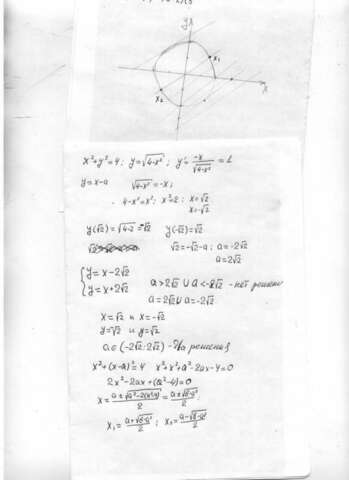 y
x₁
x₂
x
x²+y²=4; y=√(4-x²); y'= -x/√(4-x²) = 1
y=x-a √(4-x²)=-x;
4-x²=x²; x²=2; x=√2
x=-√2
y(√2)=√(4-2)=√2 y(-√2)=√2
√2=-√2-a; a=-2√2
a=2√2
{y=x-2√2
y=x+2√2
a>2√2 ∪ a<-2√2 - нет решени
a=2√2 ∪ a=-2√2
x=√2 и x=-√2
y=-√2 и y=√2
a∈(-2√2; 2√2) - два решения
x²+(x-a)²=4 x²+x²+a²-2ax-4=0
2x²-2ax+(a²-4)=0
x= (a±√(a²-2(a²-4)))/2 = (a±√(8-a²))/2
x₁= (a+√(8-a²))/2; x₂= (a-√(8-a²))/2